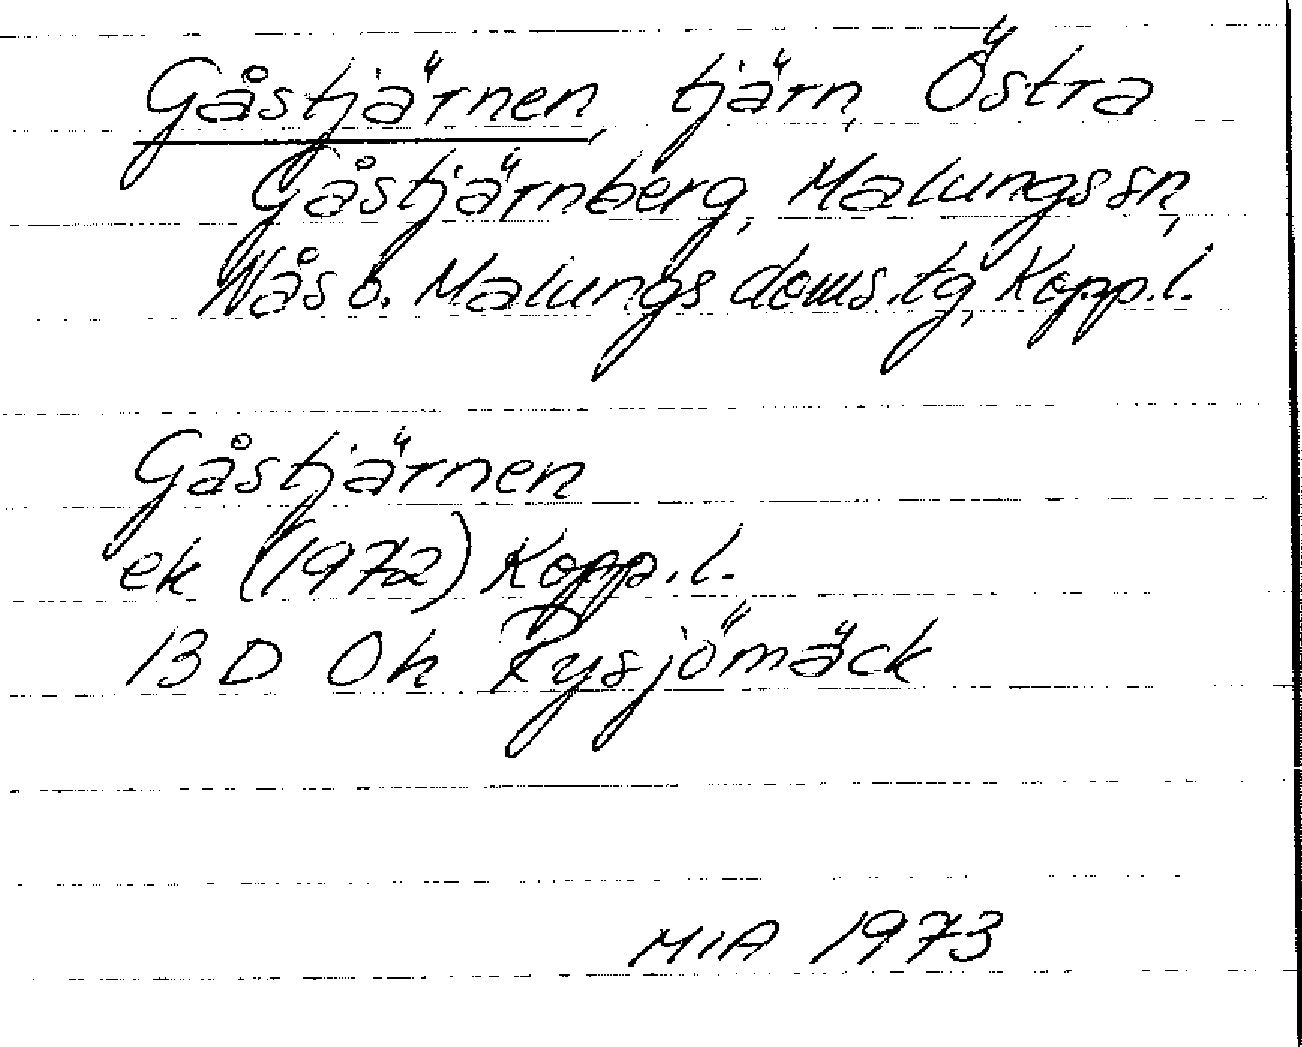 Gåstjärnen, tjärn, Östra
Gåstjärnberg, Malungs sn,
Nås o. Malungs doms.tg, Kopp.l.
Gåstjärnen
ek (1972) Kopp.l.
13 D Oh Rysjömäck
MIA 1973